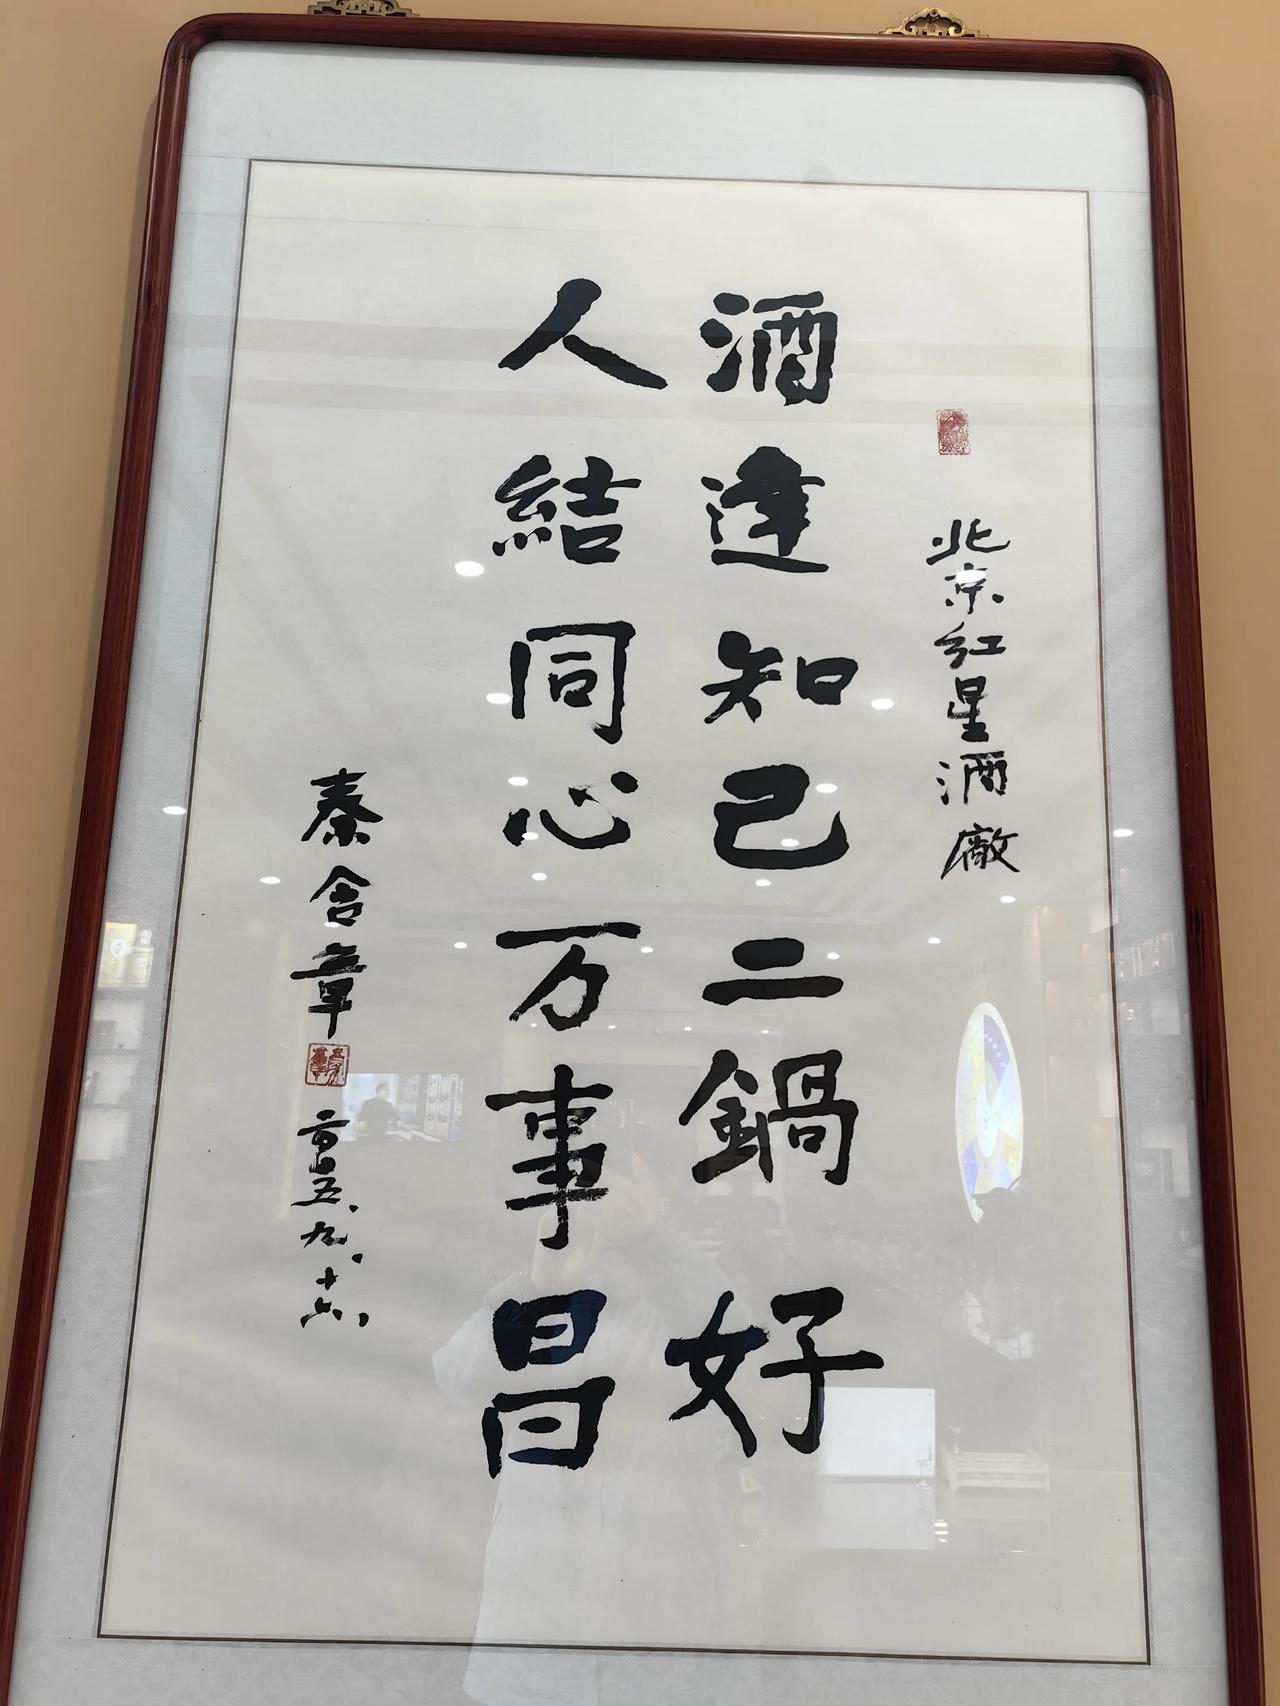 北京红星酒廠
酒逢知己二鍋好
人結同心万事昌
秦含章
二〇〇五、九、十六、